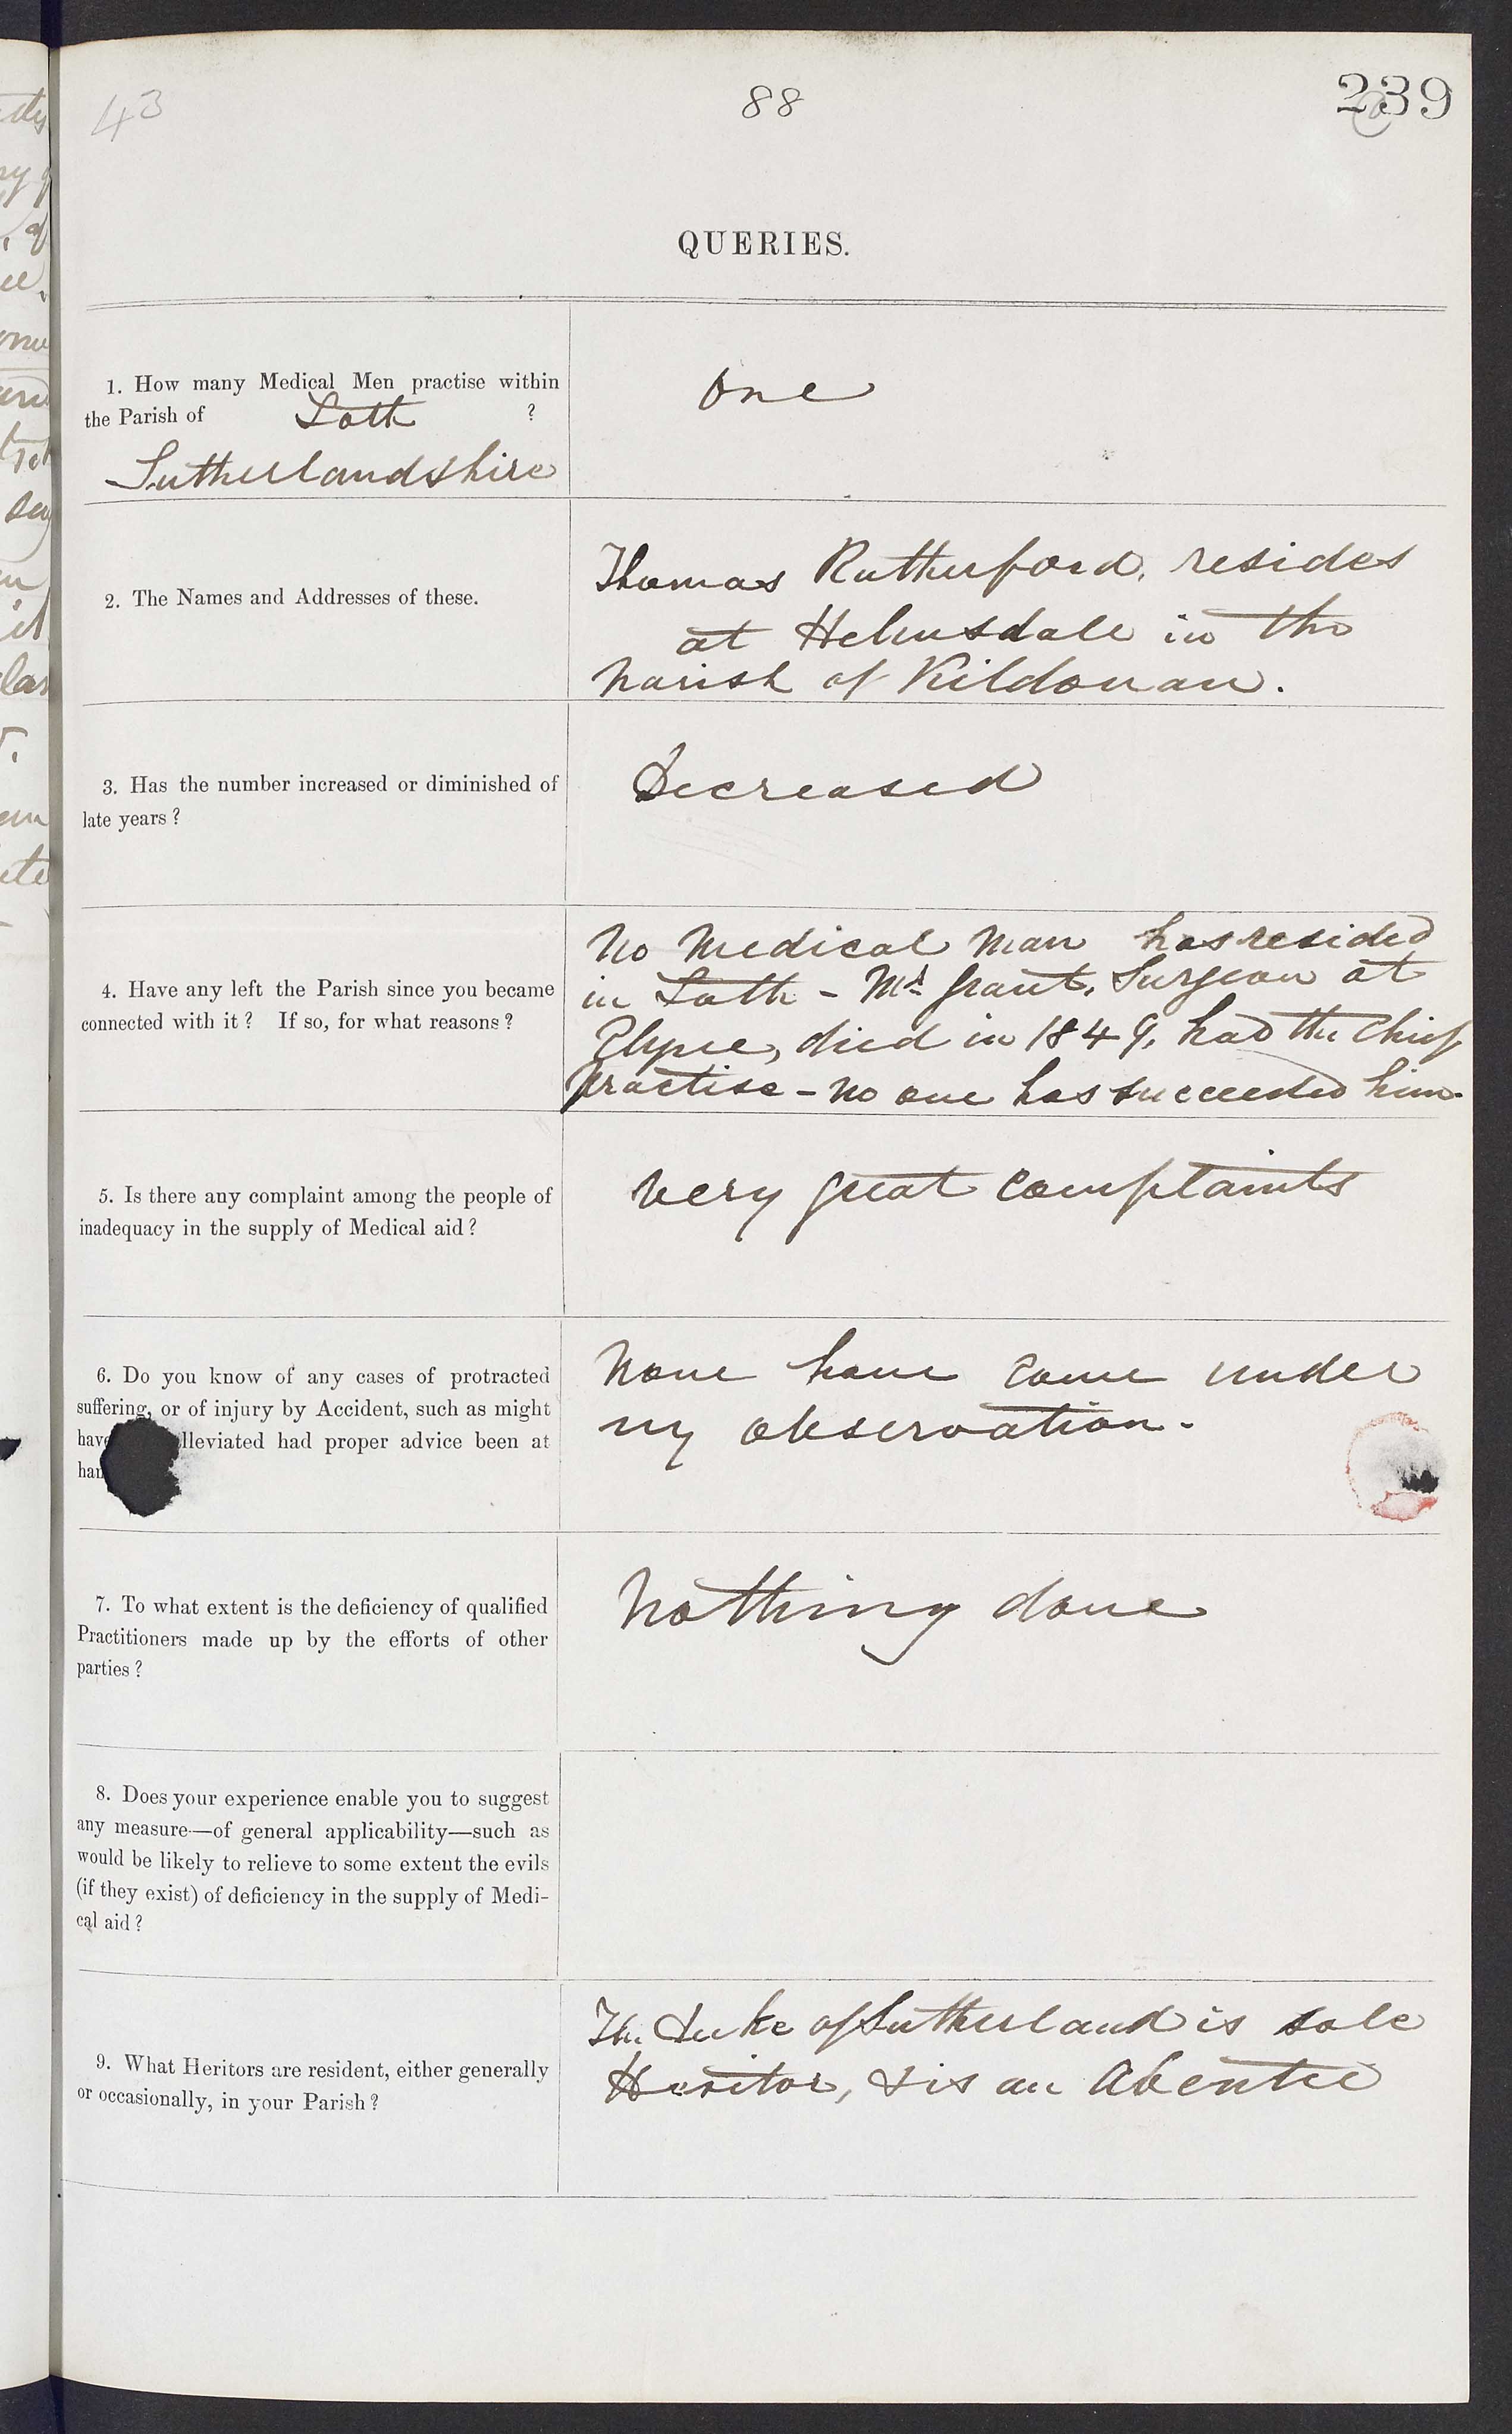 43
88
239
QUERIES.
1. How many Medical Men practise within
the Parish of Loth ?
Sutherlandshire
One
2. The Names and Addresses of these.
Thomas Rutherford, resides
at Helmsdale in the
parish of Kildonan.
3. Has the number increased or diminished of
late years?
Decreased
4. Have any left the Parish since you became
connected with it? If so, for what reasons?
No Medical Man has resided
in Loth - Mr Grant, Surgeon at
died in 1849, had the Chief
practise - no one has succeeded him.
5. Is there any complaint among the people of
inadequacy in the supply of Medical aid?
Very great complaints
6. Do you know of any cases of protracted
suffering, or of injury by Accident, such as might
have lleviated had proper advice been at
han
None have come under
my observation.
7. To what extent is the deficiency of qualified
Practitioners made up by the efforts of other
parties?
Nothing done
8. Does your experience enable you to suggest
any measure—of general applicability—such as
would be likely to relieve to some extent the evils
(if they exist) of deficiency in the supply of Medi-
cal aid?
9. What Heritors are resident, either generally
or occasionally, in your Parish?
The Duke of Sutherland is sole
Heritor, & is an Abentee